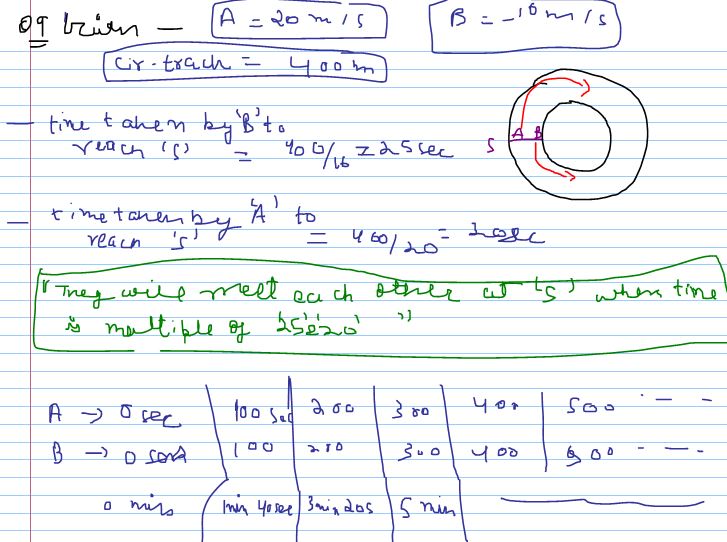 09 Given — A = 20 m/s B = -16 m/s
Cir. track = 400m
— time taken by 'B' to
reach 'S' = 400/16 = 25 sec
S A B
— time taken by 'A' to
reach 'S' = 400/20 = 20sec
"They will meet each other at 'S' when time
is multiple of '25'&'20' "
A → 0 sec 100 sec 200 300 400 500 - - -
B → 0 100 200 300 400 500 - - -
0 min 1min 40sec 3min 20s 5 min